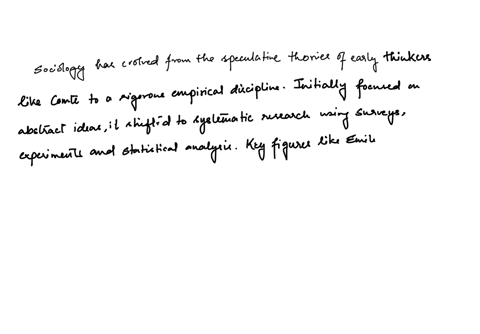 Sociology has evolved from the speculative thories of early thinkers
like Comte to a rigorous empirical discipline. Initially focused on
abstract ideas, it shifted to systematic research using surveys,
experiments and statistical analysis. Key figures like Emile